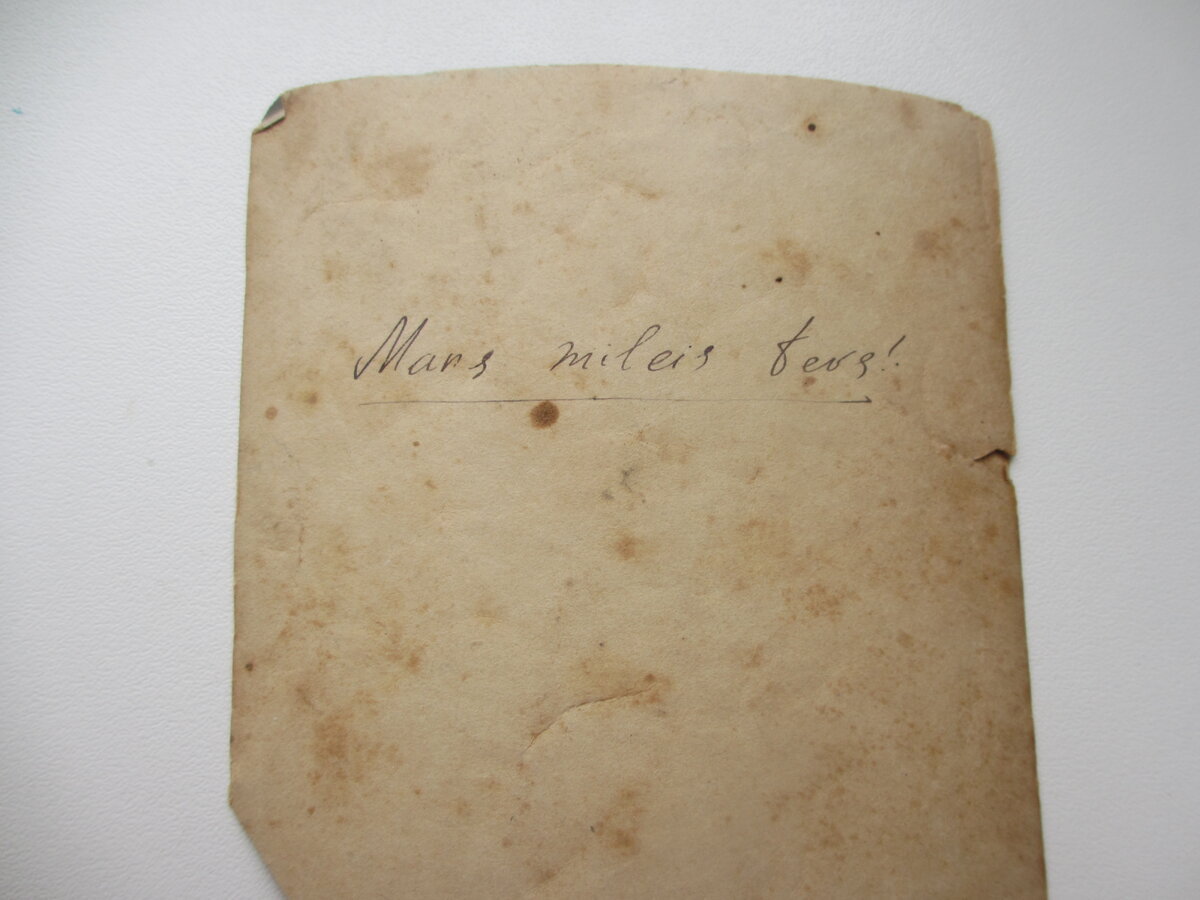 Mans mileis tevs!